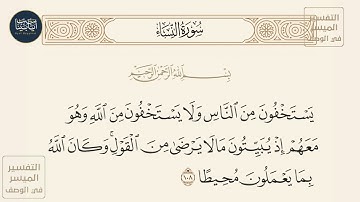 سُورَةُ النِّسَاءِ
التفسير
الميسر
في الوصف
بِسْمِ اللَّهِ الرَّحْمَٰنِ الرَّحِيمِ
يَسْتَخْفُونَ مِنَ النَّاسِ وَلَا يَسْتَخْفُونَ مِنَ اللَّهِ وَهُوَ
مَعَهُمْ إِذْ يُبَيِّتُونَ مَا لَا يَرْضَىٰ مِنَ الْقَوْلِ ۚ وَكَانَ اللَّهُ
بِمَا يَعْمَلُونَ مُحِيطًا ١٠٨
التفسير
الميسر
في الوصف